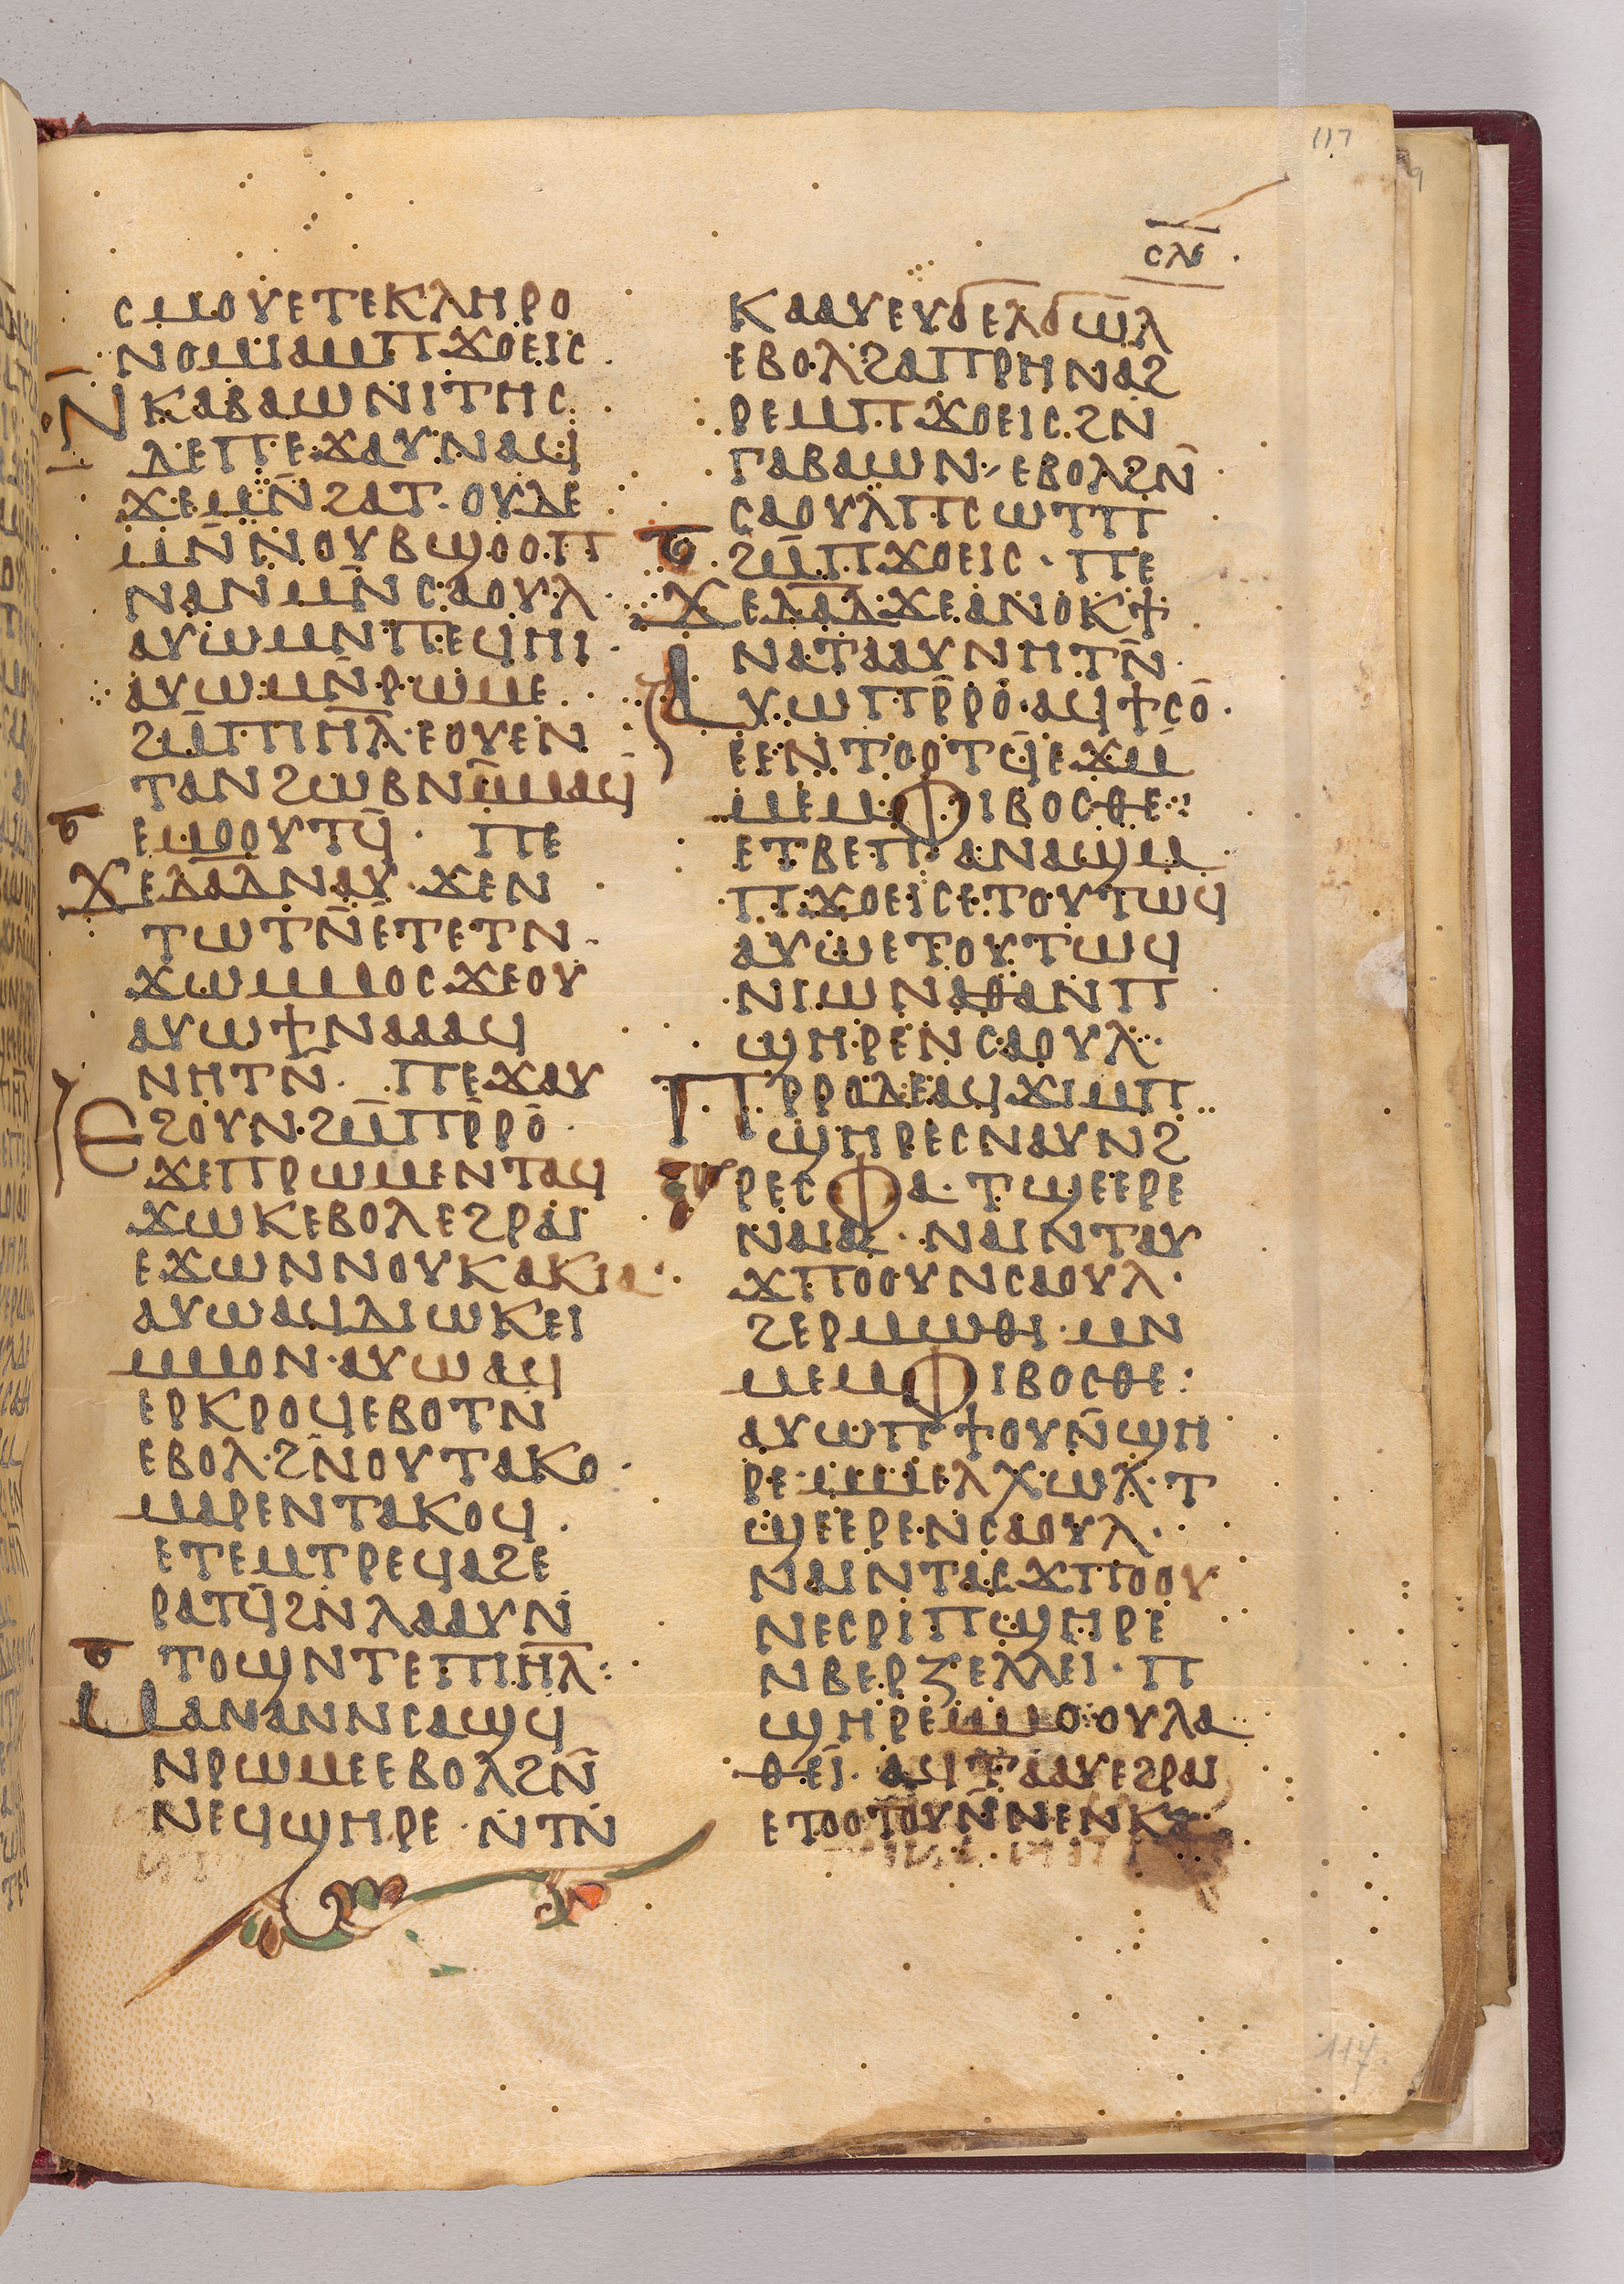 117
ⲥⲗⲉ
ⲥⲙⲟⲩⲉⲧⲉⲕⲗⲏⲣⲟ
ⲛⲟⲙⲓⲁⲙⲡϫⲟⲉⲓⲥ
ⲛⲕⲁⲃⲁⲱⲛⲓⲧⲏⲥ
ⲇⲉⲡⲉϫⲁⲩⲛⲁϥ
ϫⲉⲙⲛ̄ϩⲁⲧ· ⲟⲩⲇⲉ
ⲙⲛ̄ⲛⲟⲩⲃϣⲟⲟⲡ
ⲛⲁⲛⲙⲛ̄ⲥⲁⲟⲩⲗ
ⲁⲩⲱⲙⲛⲡⲉϥⲏⲓ·
ⲁⲩⲱⲙⲛ̄ⲣⲱⲙⲉ
ϩⲙ̄ⲡⲓⲏ̄ⲗ̄·ⲉⲟⲩⲉⲛ
ⲧⲁⲛϩⲱⲃⲛⲙ̄ⲙⲁϥ
ⲉⲙⲟⲟⲩⲧϥ̄· ⲡⲉ
ϫⲉⲇⲁⲇⲛⲁⲩ·ϫⲉⲛ
ⲧⲱⲧⲛ̄ⲉⲧⲉⲧⲛ
ϫⲱⲙⲙⲟⲥϫⲉⲟⲩ
ⲁⲩⲱϯⲛⲁⲁⲁϥ
ⲛⲏⲧⲛ̄· ⲡⲉϫⲁⲩ
ⲉϩⲟⲩⲛϩⲙ̄ⲡⲣ̄ⲣⲟ̄·
ϫⲉⲡⲣⲱⲙⲉⲛⲧⲁϥ
ϫⲱⲕⲉⲃⲟⲗⲉϩⲣⲁⲓ
ⲉϫⲱⲛⲛⲟⲩⲕⲁⲕⲓⲁ·
ⲁⲩⲱⲁϥⲇⲓⲱⲕⲉⲓ
ⲙⲙⲟⲛ·ⲁⲩⲱⲁϥ
ⲉⲣⲕⲣⲟϥⲉⲃⲟⲧⲛ
ⲉⲃⲟⲗ·ϩⲛ̄ⲟⲩⲧⲁⲕⲟ·
ⲙⲁⲣⲉⲛⲧⲁⲕⲟϥ·
ⲉⲧⲉⲙⲧⲣⲉϥⲁϩⲉ
ⲣⲁⲧϥ̄ϩⲛ̄ⲗⲁⲁⲩⲛ̇
ⲧⲟϣⲛⲧⲉⲡⲓⲏ̄ⲗ̄:
ⲙⲁⲛⲁⲛⲛⲥⲁϣϥ
ⲛⲣⲱⲙⲉⲉⲃⲟⲗϩⲛ̄
ⲛⲉϥϣⲏⲣⲉ·ⲛ̇ⲧⲛ̇
ⲕⲁⲁⲩⲉⲩϭⲉⲗϭⲱⲗ
ⲉⲃⲟⲗϩⲁⲡⲣⲏⲛⲁϩ
ⲣⲉⲙⲡϫⲟⲉⲓⲥϩⲛ
ⲅⲁⲃⲁⲱⲛ·ⲉⲃⲟⲗϩⲛ̄
ⲥⲁⲟⲩⲗⲡⲥⲱⲧⲡ
ϩⲙ̄ⲡϫⲟⲉⲓⲥ· ⲡⲉ
ϫⲉⲇⲁⲇϫⲉⲁⲛⲟⲕϯ
ⲛⲁⲧⲁⲁⲩⲛⲏⲧⲛ̄
ⲁⲩⲱⲡⲣ̄ⲣⲟ·ⲁϥϯⲥⲟ̄·
ⲉⲉⲛⲧⲟⲟⲧϥ̄ⲉϫⲙ̄
ⲙⲉⲙⲫⲓⲃⲟⲥⲑⲉ:
ⲉⲧⲃⲉⲡ·ⲁⲛⲁϣⲙ
ⲡϫⲟⲉⲓⲥⲉⲧⲟⲩⲧⲱϥ
ⲁⲩⲱⲉⲧⲟⲩⲧⲱϥ
ⲛⲓⲱⲛⲁⲑⲁⲛⲡ
ϣⲏⲣⲉⲛⲥⲁⲟⲩⲗ·
ⲡⲣⲣⲟⲇⲉⲁϥϫⲓⲙⲡ
ϣⲏⲣⲉⲥⲛⲁⲩⲛϩ
ⲣⲉⲥⲫⲁ·ⲧϣⲉⲉⲣⲉ
ⲛⲁⲓⲁ·ⲛⲁⲓⲛⲧⲁⲩ
ϫⲡⲟⲟⲩⲛⲥⲁⲟⲩⲗ·
ϩⲉⲣⲙⲱⲑⲓ·ⲙⲛ
ⲙⲉⲙⲫⲓⲃⲟⲥⲑⲉ:
ⲁⲩⲱⲡϯⲟⲩⲛ̄ϣⲏ
ⲣⲉ·ⲙⲙⲉⲗⲭⲱⲗ·ⲧ
ϣⲉⲉⲣⲉⲛⲥⲁⲟⲩⲗ·
ⲛⲁⲓⲛⲧⲁⲥϫⲡⲟⲟⲩ
ⲛⲉⲥⲣⲓⲡϣⲏⲣⲉ
ⲛⲃⲉⲣⲍⲉⲗⲗⲉⲓ·ⲡ
ϣⲏⲣⲉⲙⲙⲟⲟⲩⲗⲁ
ⲑⲉⲓ̄·ⲁϥⲧⲁⲁⲩⲉϩⲣⲁⲓ
ⲉⲧⲟⲟⲧⲟⲩⲛ̄ⲛⲉⲛⲕⲁ
117